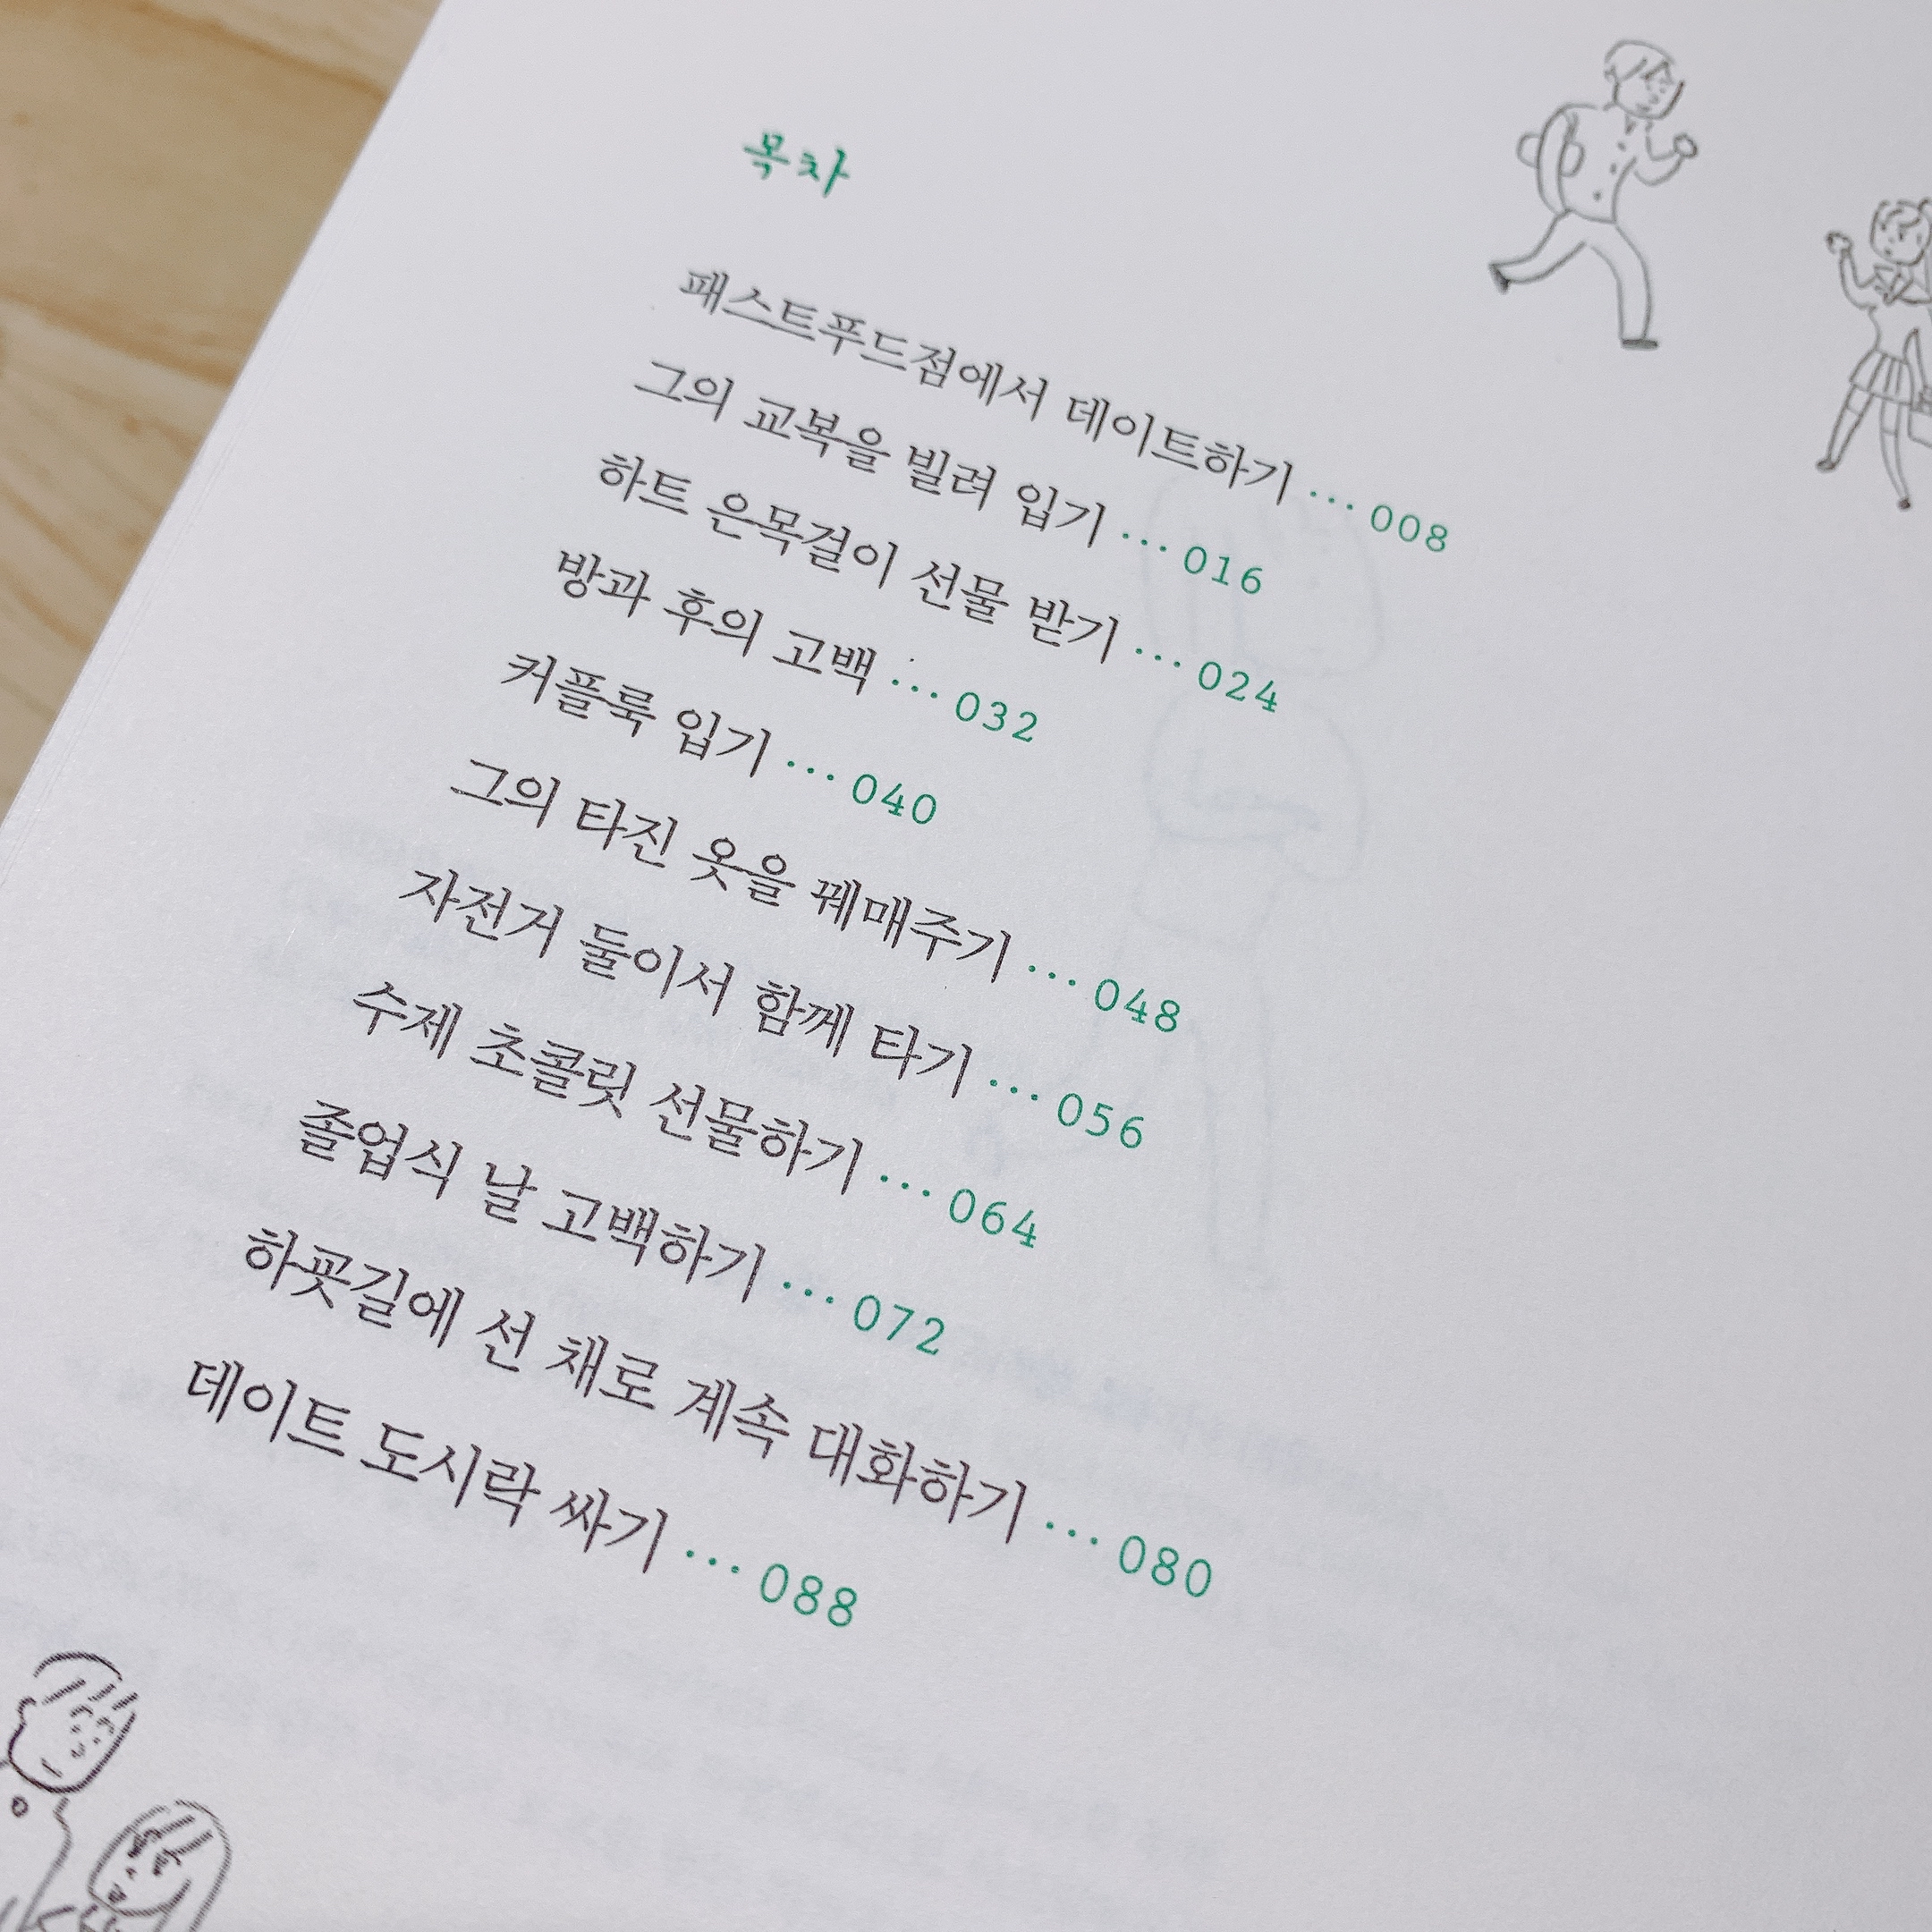 목차
패스트푸드점에서 데이트하기 … 008
그의 교복을 빌려 입기 … 016
하트 은목걸이 선물 받기 … 024
방과 후의 고백 … 032
커플룩 입기 … 040
그의 타진 옷을 꿰매주기 … 048
자전거 둘이서 함께 타기 … 056
수제 초콜릿 선물하기 … 064
졸업식 날 고백하기 … 072
하굣길에 선 채로 계속 대화하기 … 080
데이트 도시락 싸기 … 088